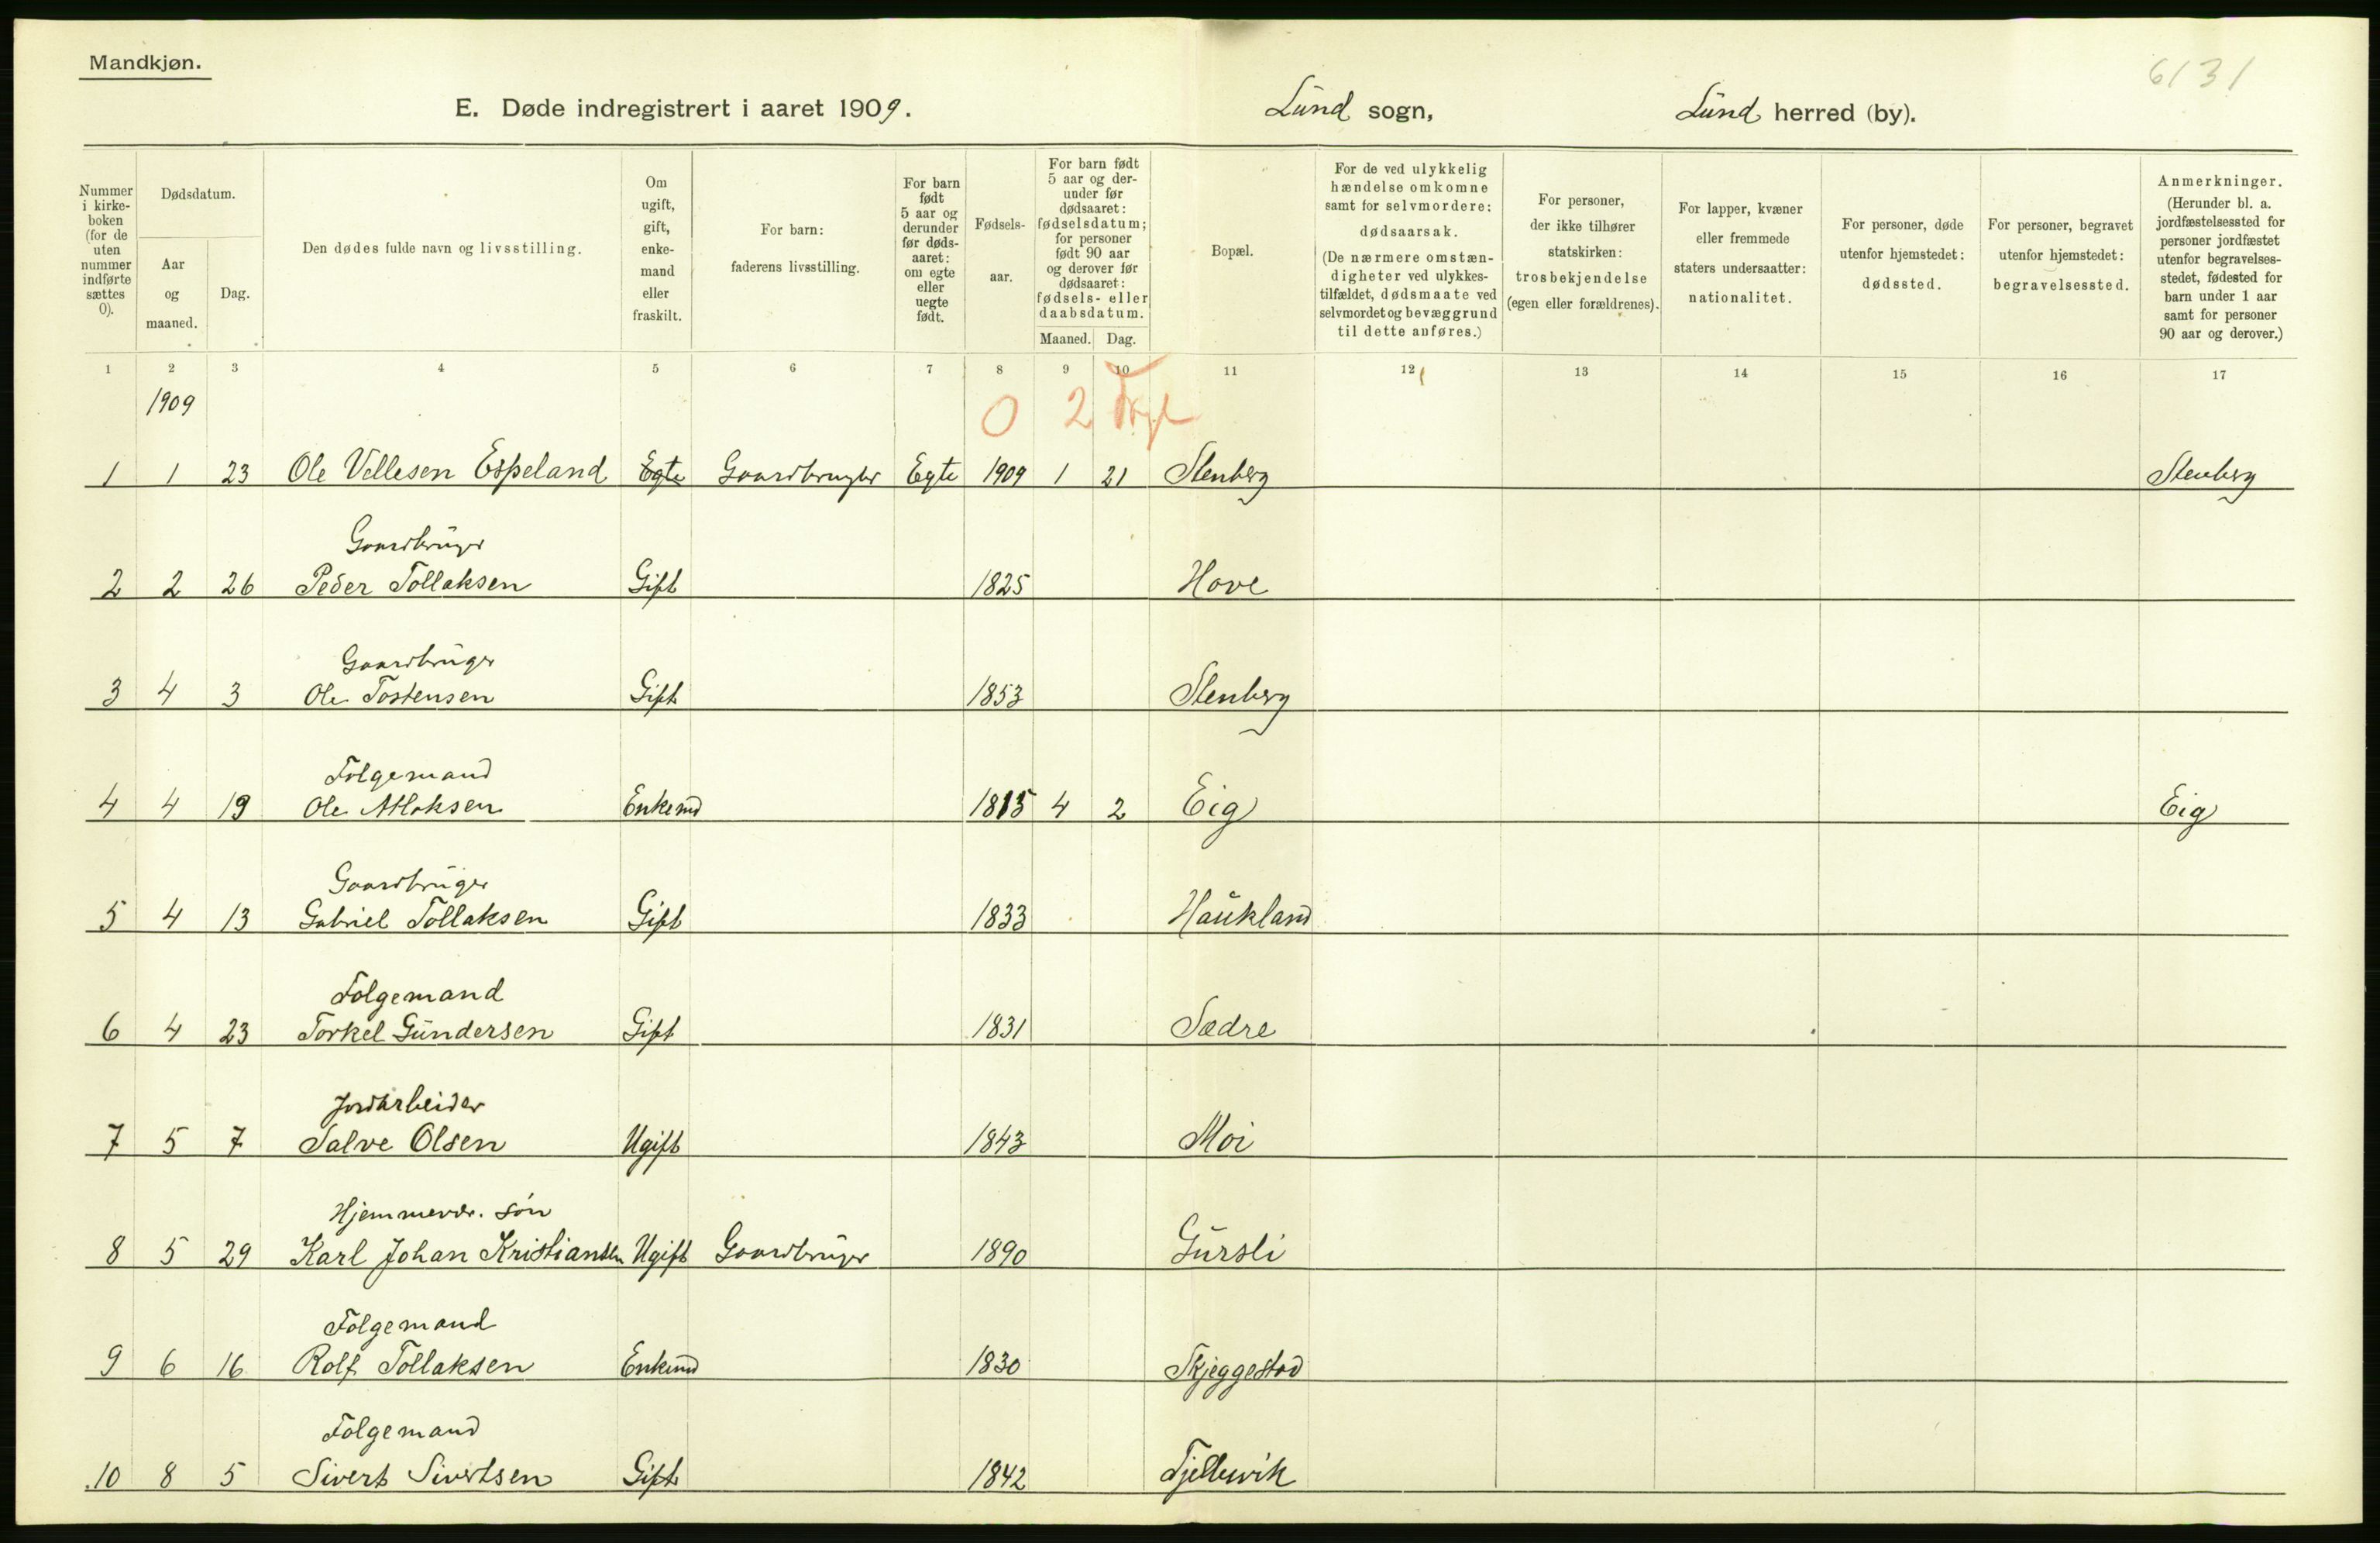 Mandkjøn.
6131
E. Døde indregistrert i aaret 1909. Lund sogn, Lund herred (by).
Nummer i kirke- boken (for de uten nummer indførte sættes 0).
Dødsdatum.
Aar og maaned.
Dag.
Den dødes fulde navn og livsstilling.
Om ugift, gift, enke- mand eller fraskilt.
For barn: faderens livsstilling.
For barn født 5 aar og derunder før døds- aaret: om egte eller uegte født.
Fødsels- aar.
For barn født 5 aar og der- under før dødsaaret: fødselsdatum; for personer født 90 aar og derover før dødsaaret: fødsels- eller daabsdatum.
Maaned. Dag.
Bopæl.
For de ved ulykkelig hændelse omkomne samt for selvmordere: dødsaarsak. (De nærmere omstæn- digheter ved ulykkes- tilfældet, dødsmaate ved selvmordet og bevæggrund til dette anføres.)
For personer, der ikke tilhører statskirken: trosbekjendelse (egen eller forældrenes).
For lapper, kvæner eller fremmede staters undersaatter: nationalitet.
For personer, døde utenfor hjemstedet: dødssted.
For personer, begravet utenfor hjemstedet: begravelsessted.
Anmerkninger. (Herunder bl. a. jordfæstelsessted for personer jordfæstet utenfor begravelses- stedet, fødested for barn under 1 aar samt for personer 90 aar og derover.)
1 2 3 4 5 6 7 8 9 10 11 12 13 14 15 16 17
1909
0 2
1 1 23 Ole Vellesen Espeland Egte Gaardbruger Egte 1909 1 21 Stenberg Stenberg
Gaardbruger
2 2 26 Peder Tollaksen Gift 1825 Hove
Gaardbruger
3 4 3 Ole Tostensen Gift 1853 Stenberg
Folgemand
4 4 19 Ole Atlaksen Enkemd 1815 4 2 Eig Eig
Gaardbruger
5 4 13 Gabriel Tollaksen Gift 1833 Haukland
Folgemand
6 4 23 Torkel Gundersen Gift 1831 Sædre
Jordarbeider
7 5 7 Salve Olsen Ugift 1843 Moi
Hjemmevær. søn
8 5 29 Karl Johan Kristiansen Ugift Gaardbruger 1890 Gursli
Folgemand
9 6 16 Rolf Tollaksen Enkemd 1830 Skjeggestad
Folgemand
10 8 5 Sivert Sivertsen Gift 1842 Fjellesvik